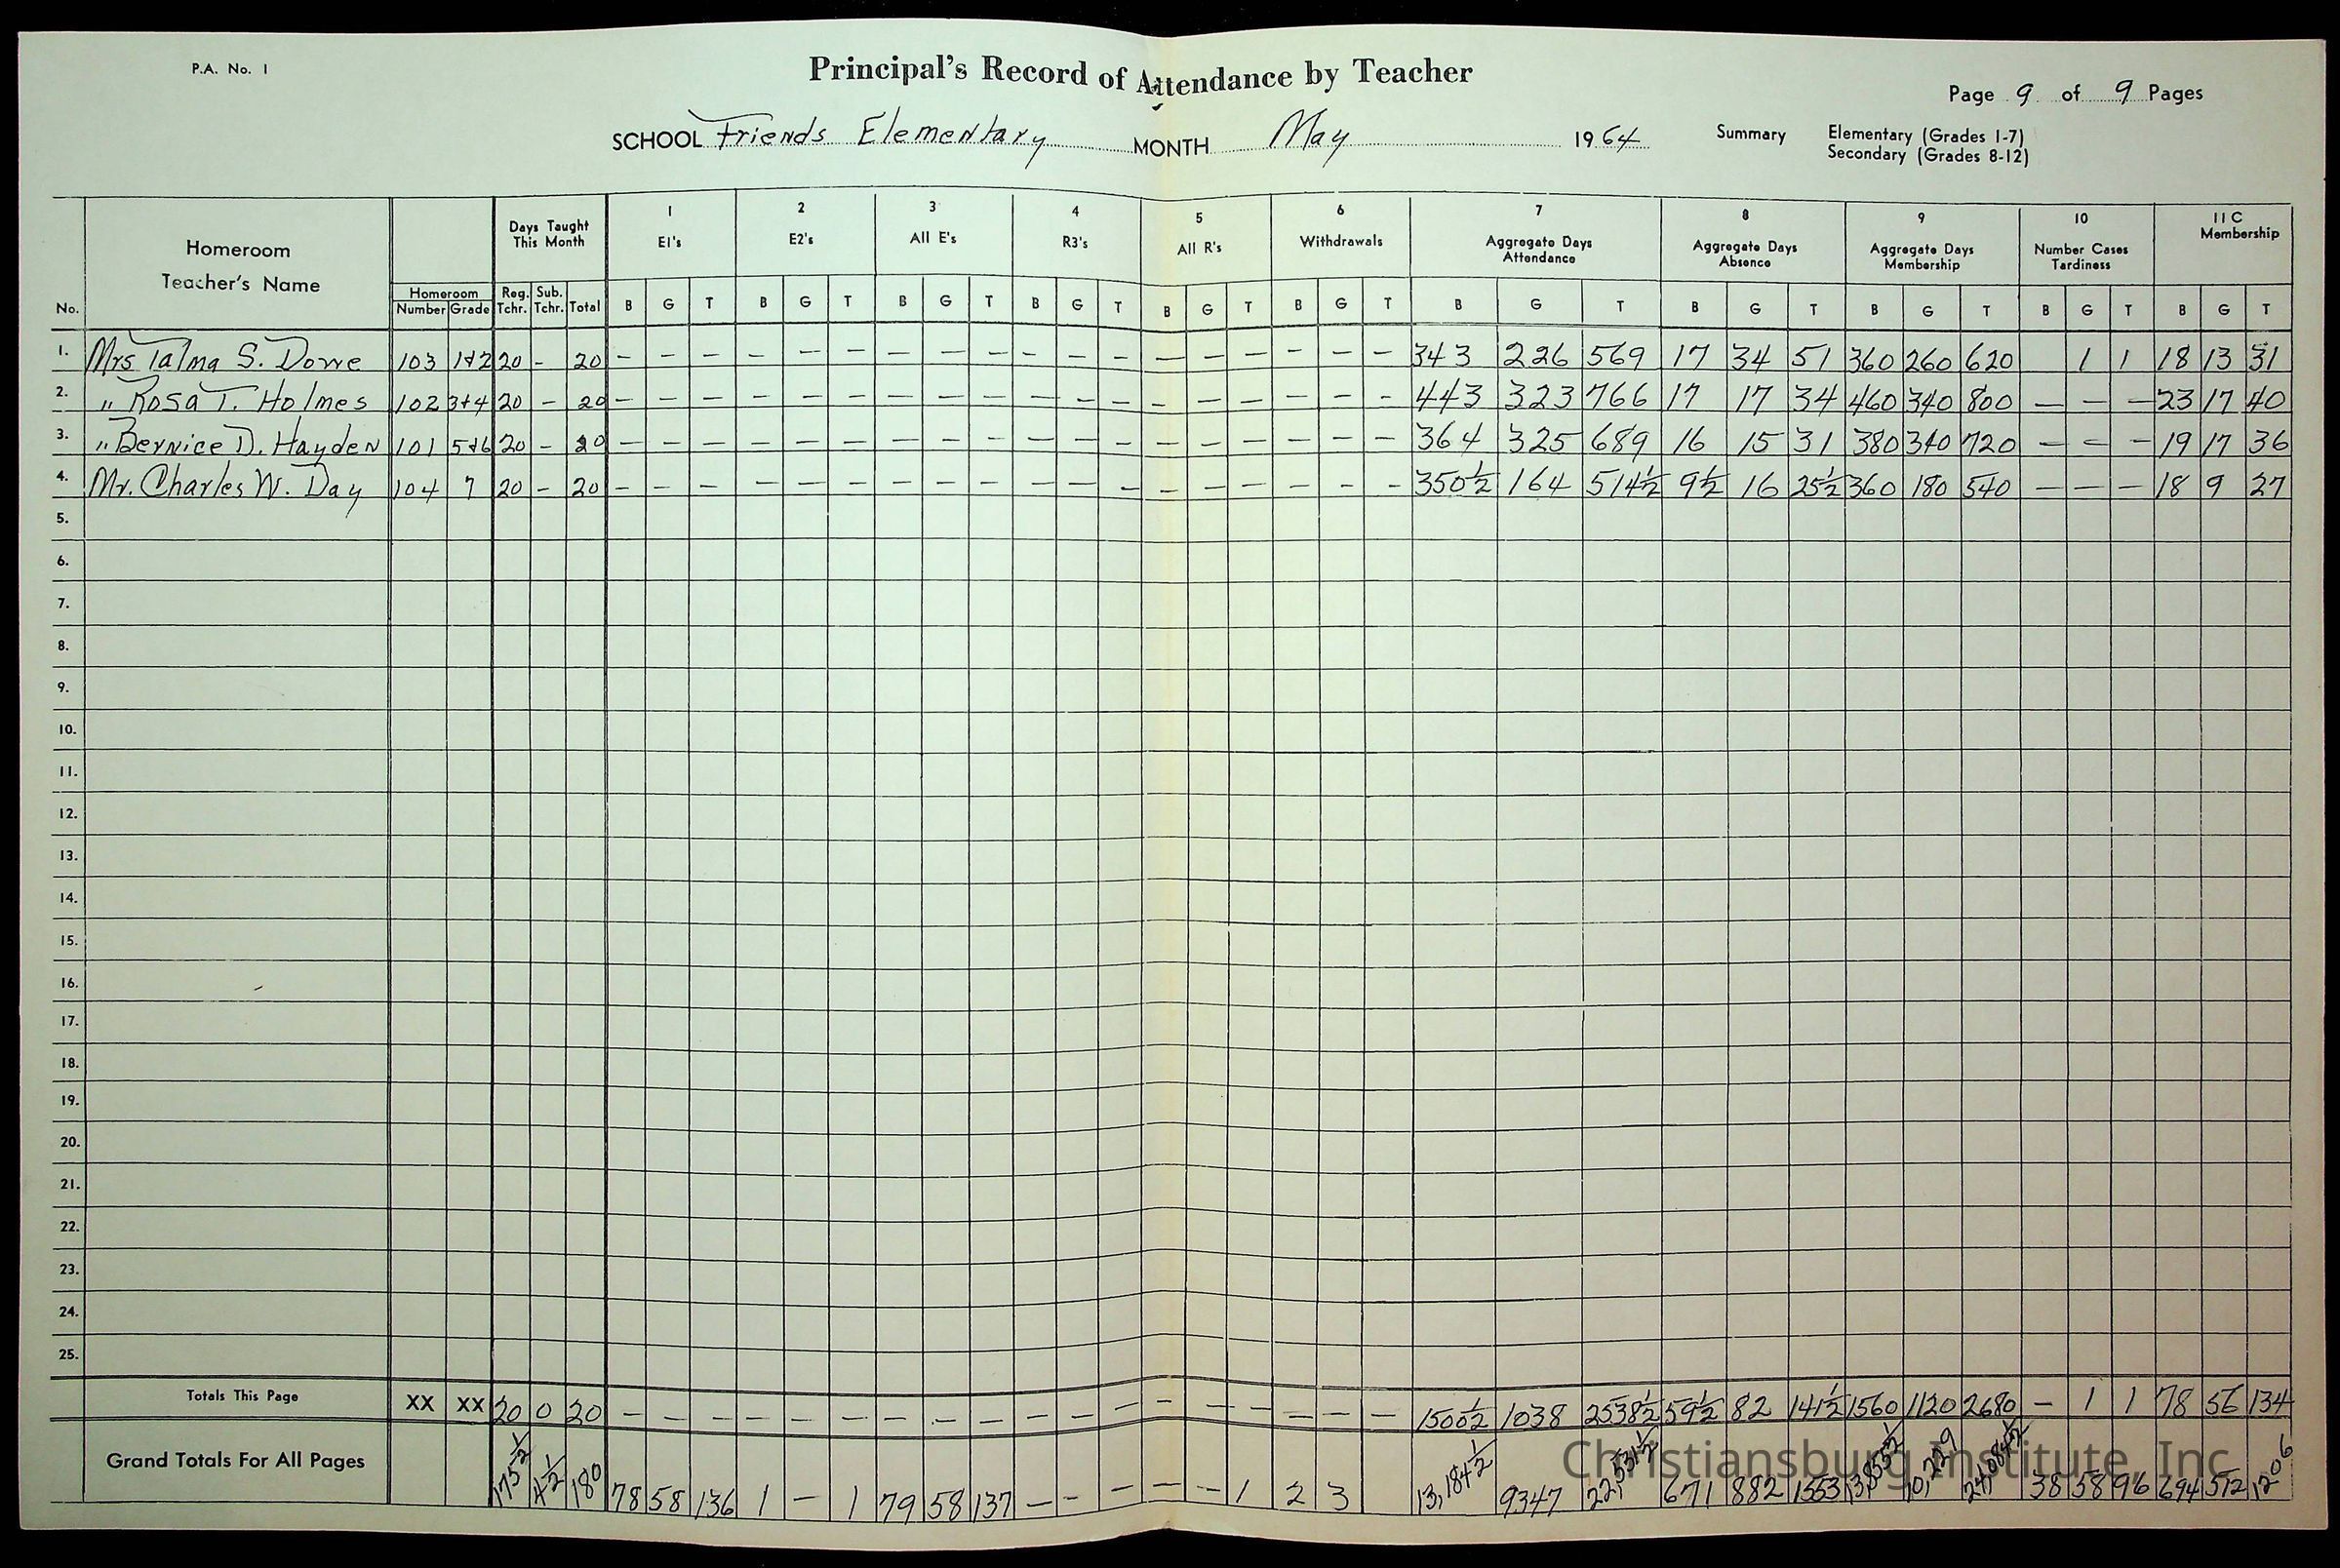 P.A. No. 1
Principal's Record of Attendance by Teacher
Page 9 of 9 Pages
SCHOOL Friends Elementary MONTH May 1964 Summary Elementary (Grades 1-7)
Secondary (Grades 8-12)
No. Homeroom Teacher's Name Homeroom Number Grade Days Taught This Month Reg. Tchr. Sub. Tchr. Total 1 E1's B G T 2 E2's B G T 3 All E's B G T 4 R3's B G T 5 All R's B G T 6 Withdrawals B G T 7 Aggregate Days Attendance B G T 8 Aggregate Days Absence B G T 9 Aggregate Days Membership B G T 10 Number Cases Tardiness B G T 11 C Membership B G T
1. Mrs Talma S. Dowe 103 1+2 20 - 20 - - - - - - - - - - - - - - - - - - 343 226 569 17 34 51 360 260 620 1 1 18 13 31
2. " Rosa T. Holmes 102 3+4 20 - 20 - - - - - - - - - - - - - - - - - - 443 323 766 17 17 34 460 340 800 - - - 23 17 40
3. " Bernice D. Hayden 101 5+6 20 - 20 - - - - - - - - - - - - - - - - - - 364 325 689 16 15 31 380 340 720 - - - 19 17 36
4. Mr. Charles W. Day 104 7 20 - 20 - - - - - - - - - - - - - - - - - - 350½ 164 514½ 9½ 16 25½ 360 180 540 - - - 18 9 27
5.
6.
7.
8.
9.
10.
11.
12.
13.
14.
15.
16.
17.
18.
19.
20.
21.
22.
23.
24.
25.
Totals This Page XX XX 20 0 20 - - - - - - - - - - - - - - - - - - 1500½ 1038 2538½ 59½ 82 141½ 1560 1120 2680 - 1 1 78 56 134
Grand Totals For All Pages 175½ 4½ 180 78 58 136 1 - 1 79 58 137 - - - - - 1 2 3 13,184½ 9347 22,531½ 671 882 1553 13,855½ 10,229 24,084½ 38 58 96 694 512 1206
Christiansburg Institute, Inc